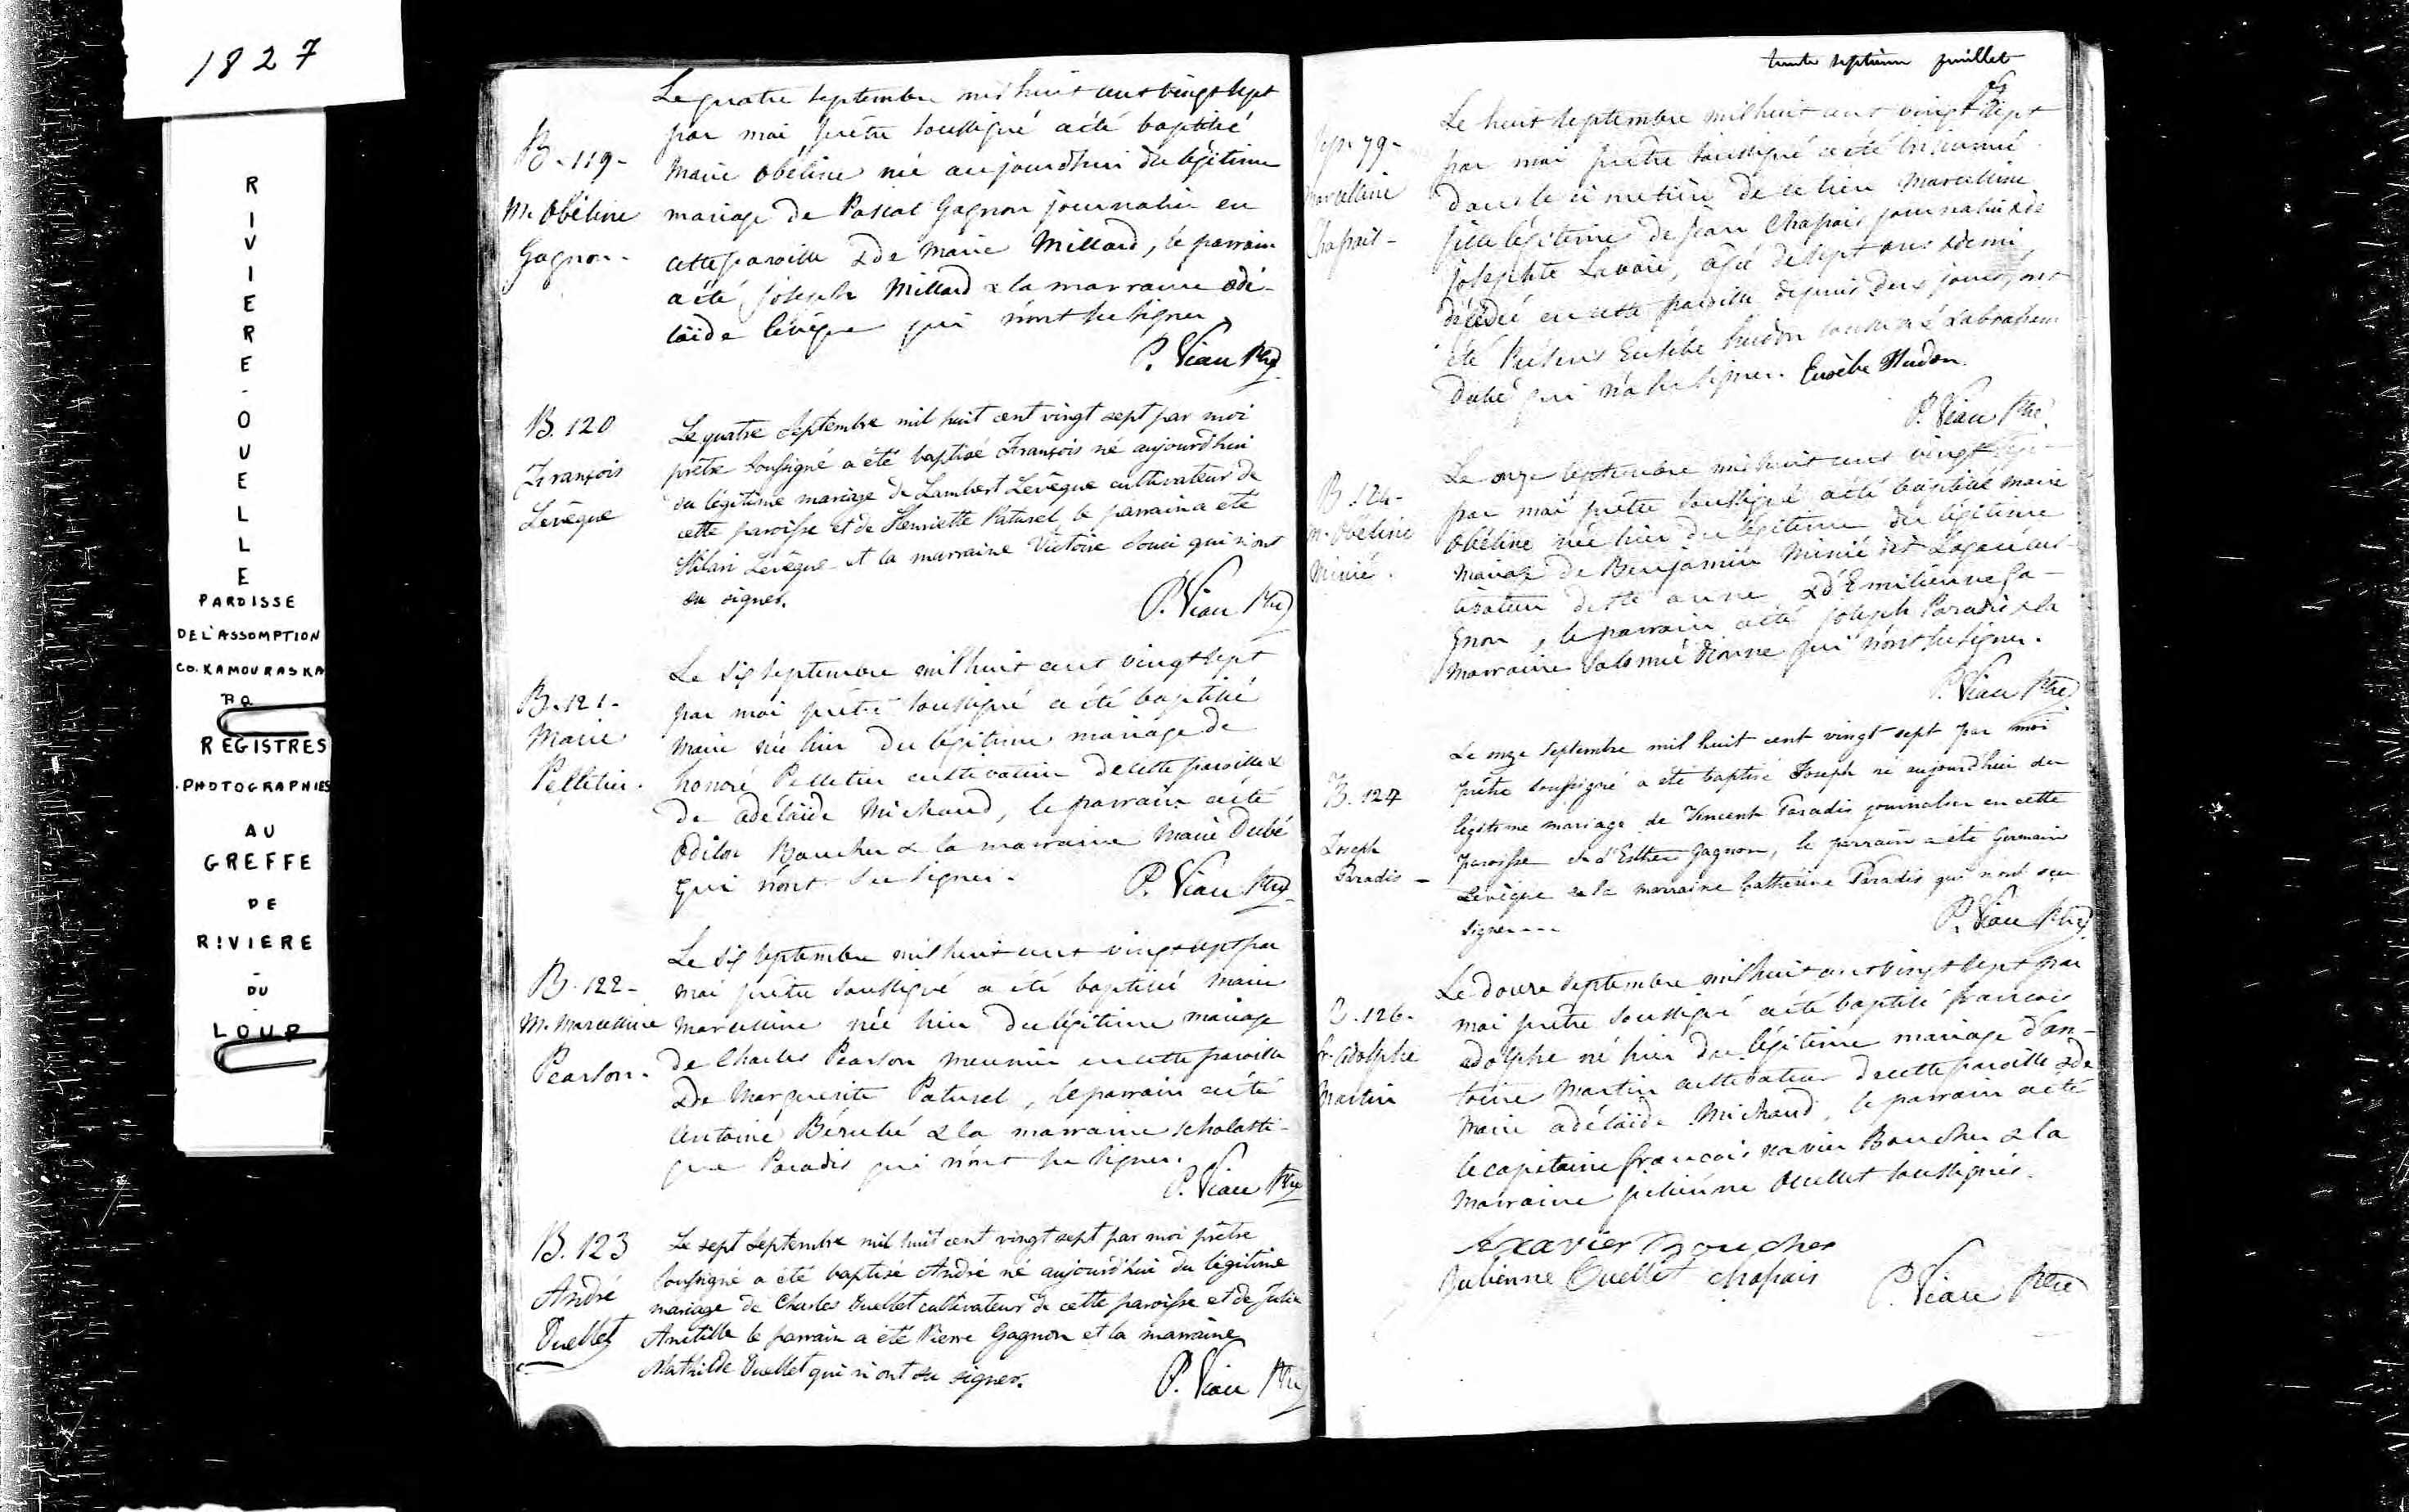 1827
RIVIERE-OUELLE
PAROISSE
DE L'ASSOMPTION
CO. KAMOURASKA
P.Q.
REGISTRES
PHOTOGRAPHIES
AU
GREFFE
DE
RIVIERE
-
DU
-
LOUP
B. 119-
M. Obéline
Gagnon-
Le quatre septembre mil huit cent vingt sept
par moi prêtre soussigné a été baptisé
Marie Obéline né aujourdhui du légitime
mariage de Pascal Gagnon journalier en
cette paroisse & de Marie Millard, le parrain
a été Joseph Millard & la marraine adé-
laïde lévêque qui n'ont su signer
P. Viau Ptre
B. 120
François
Levêque
Le quatre Septembre mil huit cent vingt sept par moi
prêtre soussigné a été baptisé François né aujourd'hui
du légitime mariage de Lambert Levêque cultivateur de
cette paroisse et de Henriette Paturel, le parrain a été
Hilari Levêque et la marraine Victoire Souci qui n'ont
su signer.
P. Viau Ptre
B. 121-
Marie
Pelletier.
Le six septembre mil huit cent vingt sept
par moi prêtre soussigné a été baptisé
Marie née hier du légitime mariage de
honoré Pelletier cultivateur de cette paroisse &
de adélaïde Michaud, le parrain a été
Odilon Boucher & la marraine Marie Dubé
qui n'ont su signer.
P. Viau Ptre
B. 122-
M. Marcelline
Pearson.
Le six septembre mil huit cent vingt sept par
moi prêtre soussigné a été baptisé marie
marcelline née hier du légitime mariage
de Charles Pearson meunier en cette paroisse
& de Marguerite Paturel, le parrain a été
Antoine Bérubé & la marraine scholasti-
que Paradis qui n'ont su signer.
P. Viau Ptre
B. 123
André
Ouellet
Le sept Septembre mil huit cent vingt sept par moi prêtre
soussigné a été baptisé André né aujourd'hui du légitime
mariage de Charles Ouellet cultivateur de cette paroisse et de Julie
Anctille le parrain a été Pierre Gagnon et la marraine
Mathilde Ouellet qui n'ont su signer.
P. Viau Ptre
trente septieme feuillet
Sep. 79-
Marcelline
Chapais-
Le huit septembre mil huit cent vingt sept
par moi prêtre soussigné a été inhumé
dans le cimetière de ce lieu Marcelline
fille légitime de Jean Chapais journalier & de
Josephte Lavoie, agée de sept ans & demi
décédé en cette paroisse depuis deux jours, ont
été présens Eusèbe hudon soussigné & abraham
dubé qui n'a su signer. Eusèbe Hudon
P. Viau Ptre
B. 124-
M. Obéline
Minié.
Le onze septembre mil huit cent vingt sept
par moi prêtre soussigné a été baptisé marie
Obéline née hier du légitime du légitime
mariage de Benjamin Minié dit Lagacé cul-
tivateur de Ste anne & d'Emilienne Ga-
gnon, le parrain a été Joseph Paradis & la
marraine Salomé dionne qui n'ont su signer.
P. Viau Ptre
B. 124
Joseph
Paradis-
Le onze Septembre mil huit cent vingt sept par moi
prêtre soussigné a été baptisé Joseph né aujourd'hui du
légitime mariage de Vincent Paradis journalier en cette
paroisse et d'Esther Gagnon, le parrain a été Germain
Levêque & la marraine Catherine Paradis qui n'ont su
signer---
P. Viau Ptre
B. 126-
Fr. Adolphe
Martin
Le douze septembre mil huit cent vingt sept par
moi prêtre soussigné a été baptisé francois
adolphe né hier du légitime mariage d'an-
toine Martin cultivateur de cette paroisse & de
Marie adélaïde Michaud, le parrain a été
le capitaine francois xavier Boucher & la
marraine julienne Ouellet soussignés.
F xavier Boucher
Julienne Ouellet Chapais
P. Viau Ptre